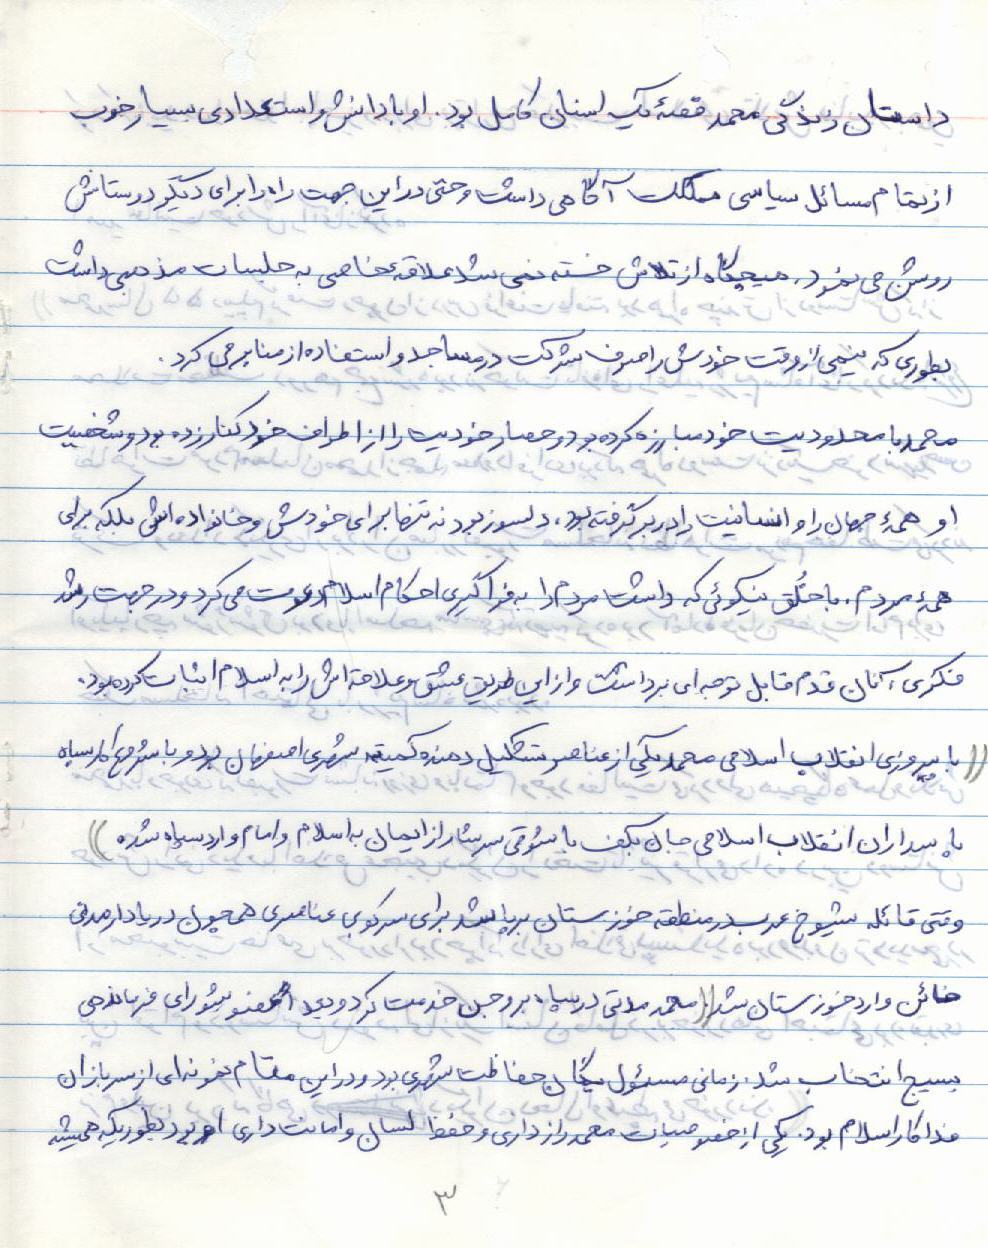 داستان زندگی محمد قصهٔ یک انسان کامل بود. او با دانش و استعدادی بسیار خوب
از تمام مسائل سیاسی مملکت آگاهی داشت و حتی در این جهت راه را برای دیگر دوستانش
روشن می نمود. هیچگاه از تلاش خسته نمی شد علاقهٔ خاصی به جلسات مذهبی داشت
بطوری که نیمی از وقت خودش را صرف شرکت در مساجد و استفاده از منابر می کرد.
محمد با محدودیت خود مبارزه کرده بود و حصار خودیت را از اطراف خود کنار زده بود و شخصیت
او همهٔ جهان را و انسانیت را دربر گرفته بود، دلسوز بود نه تنها برای خودش و خانواده اش بلکه برای
همهٔ مردم. با خُلق نیکوئی که داشت مردم را به فراگیری احکام اسلام دعوت می کرد و در جهت رشد
فکری آنان قدم قابل توجه ای برداشت و از این طریق عشق و علاقه اش را به اسلام اثبات کرده بود.
((با پیروزی انقلاب اسلامی محمد یکی از عناصر تشکیل دهنده کمیته شهری اصفهان بود و با شروع کار سپاه
پاسداران انقلاب اسلامی جان بکف با شوقی سرشار از ایمان به اسلام و امام وارد سپاه شده))
وقتی قائله شیوخ عرب در منطقه خوزستان برپا شد برای سرکوبی عناصری همچون دریادار مدنی
خائن وارد خوزستان شد((محمد مدتی در سپاه بروجن خدمت کرد و عضو شورای فرماندهی
بسیج انتخاب شد. زمانی مسئول یگان حفاظت شهری بود و در این مقام نمونه ای از سربازان
فداکار اسلام بود. یکی از خصوصیات محمد رازداری و حفظ لسان و امانت داری او بود بطوریکه همیشه
۳